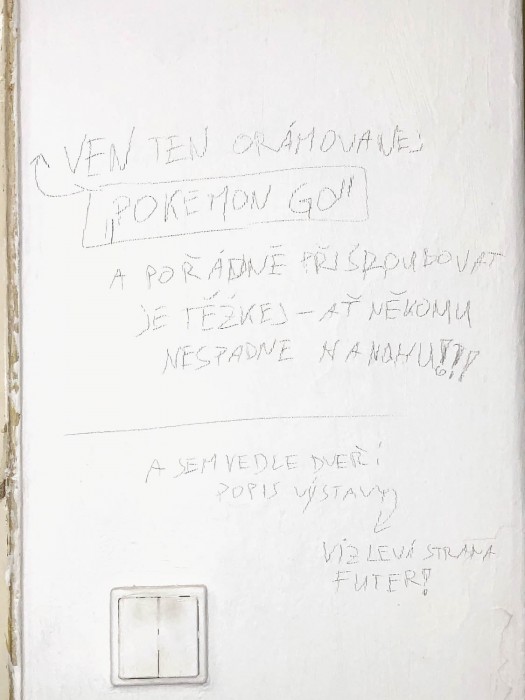 VEN TEN ORÁMOVANEJ
„POKEMON GO"
A POŘÁDNĚ PŘIŠROUBOVAT
JE TĚŽKEJ – AŤ NĚKOMU
NESPADNE NA NOHU!!!
A SEM VEDLE DVEŘÍ
POPIS VÝSTAVY
VIZ LEVÁ STRANA
FUTER!